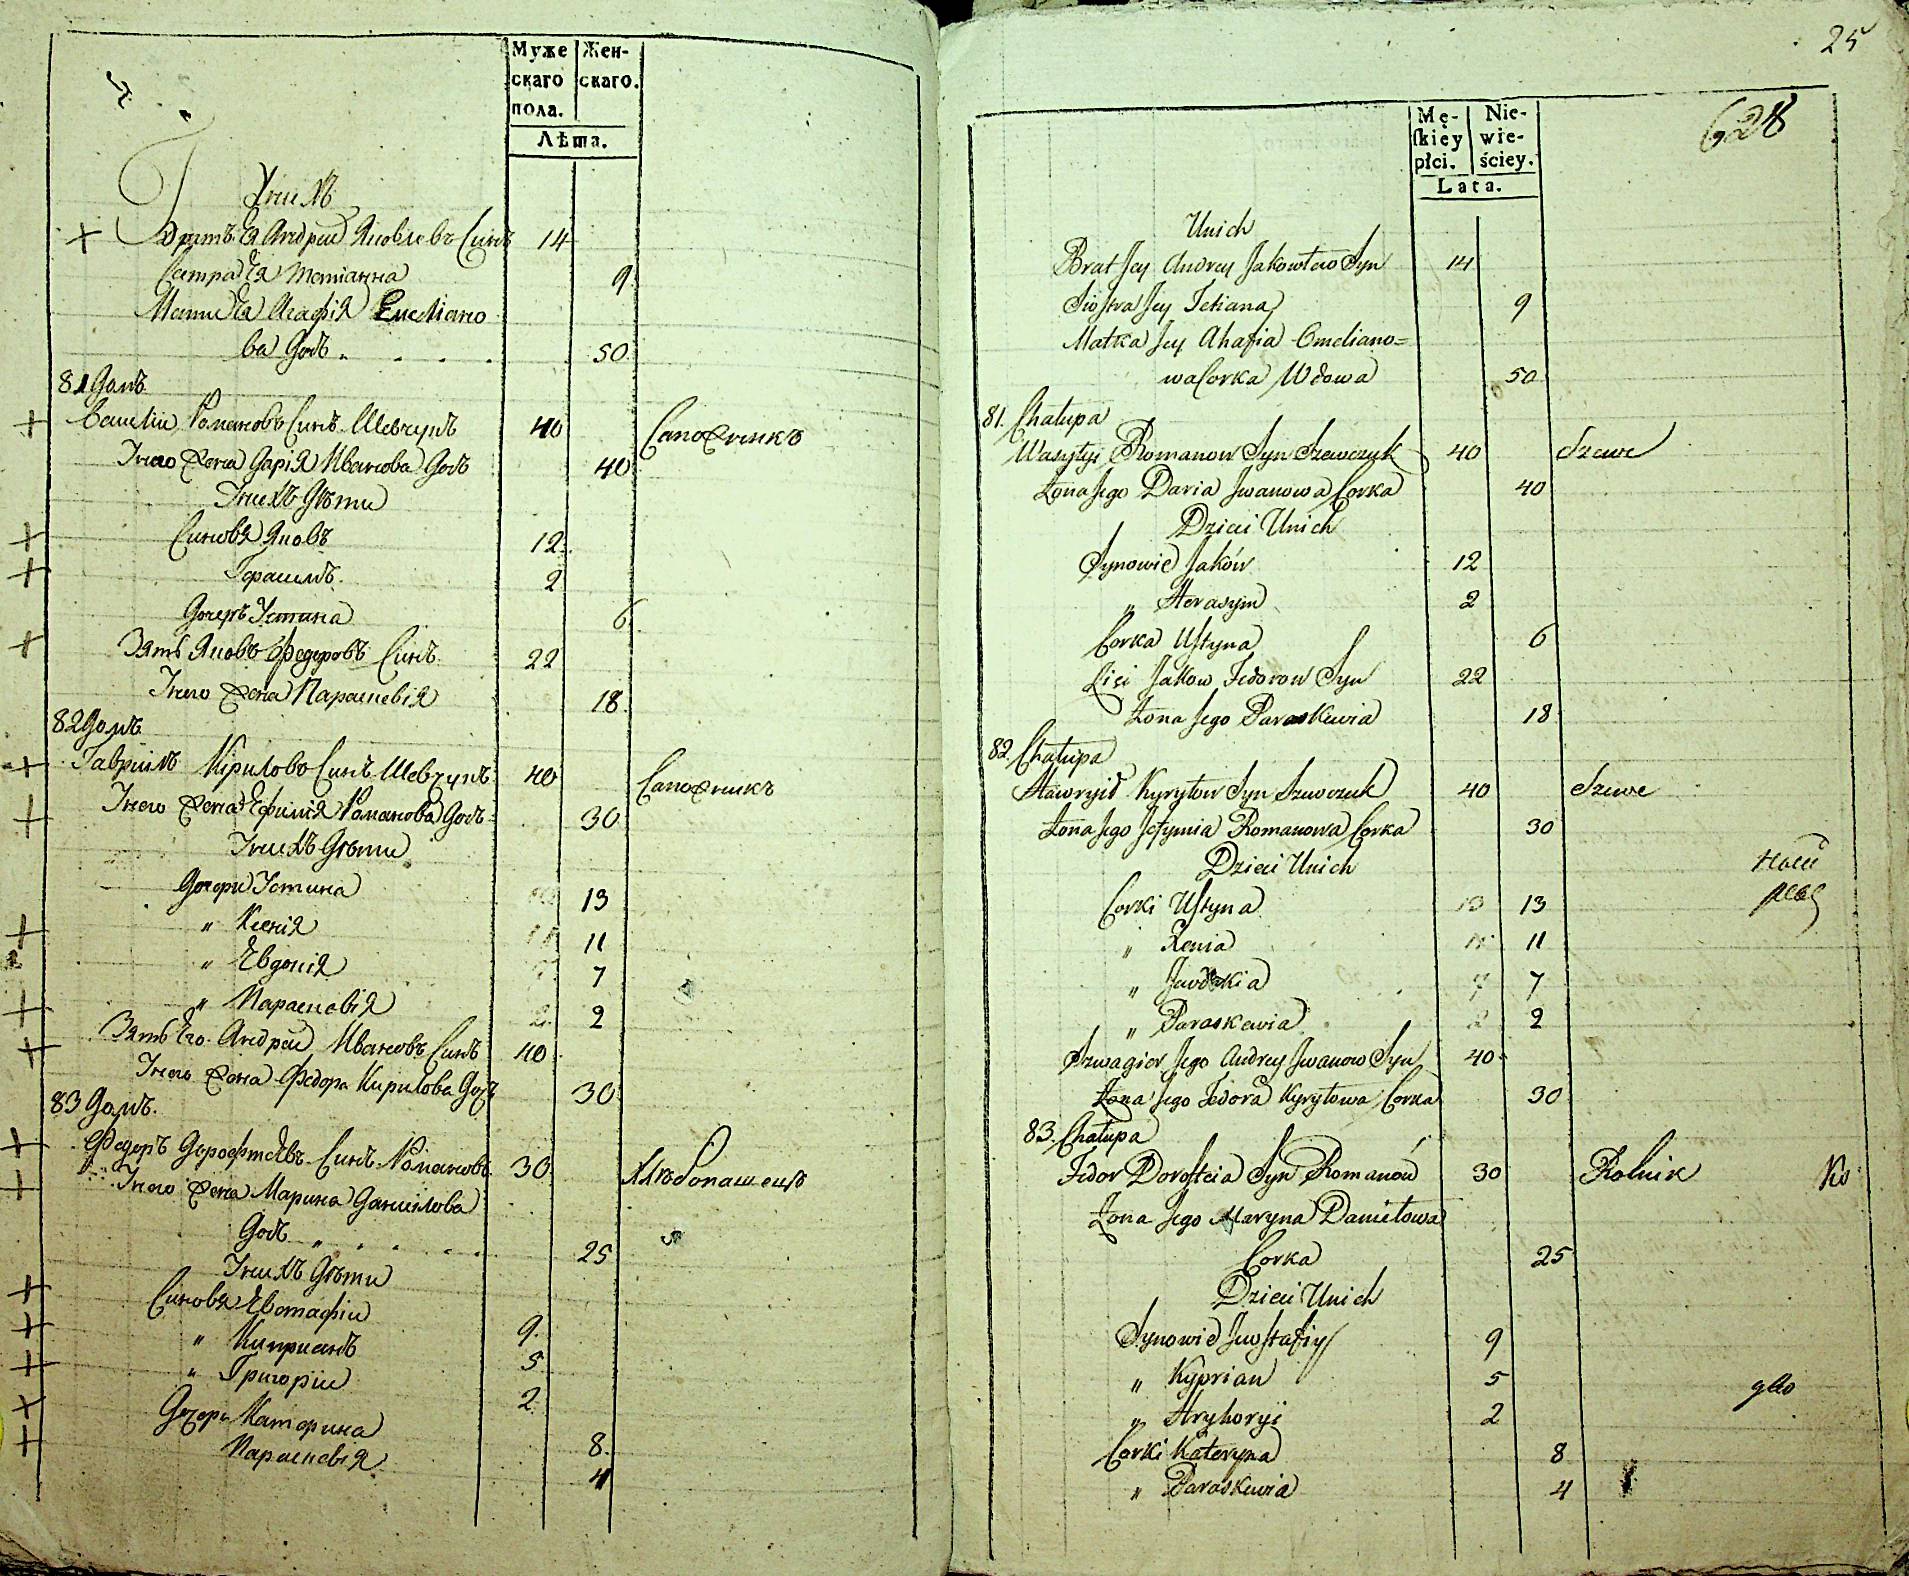 Муже Жен-
скаго скаго.
пола.
Лѣта.
У них
Братъ Ея Андрей Яковлевъ Синъ 14
Сестра Ея Татіанна 9
Мати Ея Агафія Емеліано
ва Доч. 50
81 Домъ
Василій Романовъ Синъ Шевчукъ 40 Сапожникъ
У него Жена Дарія Иванова Доч 40
У нихъ Дѣти
Синовя Яковъ 12
Герасимъ 2
Дочеръ Устина 6
Зять Яковъ Федоровъ Синъ 22
У него Жена Параскевія 18
82 Домъ
Гавріилъ Кириловъ Синъ Шевчукъ 40 Сапожникъ
У него Жена Ефимія Романова Доч 30
У нихъ Дѣти
Дочери Устина 13
" Ксенія 11
" Евдокія 7
" Параскевія 2
Зять Его Андрей Ивановъ Синъ 40
У него Жена Федора Кирилова Доч 30
83 Домъ
Федоръ Дорофтеевъ Синъ Романовъ 30 Хлѣбопашецъ
У него Жена Марина Даниилова
Доч " 25
У нихъ Дѣти
Синовя Евстафій 9
" Кипріанъ 5
" Григорій 2
Дочери Катерина 8
Параскевія 4
25
628
Mę- Nie-
ſkiey wie-
płci. ściey.
Lata.
Unich
Brat Jey Andrey Jakowlew Syn 14
Siostra Jey Tetiana 9
Matka Jey Ahafia Omeliano=
wa Corka Wdowa 50
81. Chałupa
Wasylyi Romanow Syn Szewczuk 40 Szewc
Żona Jego Daria Jwanowa Corka 40
Dzieci Unich
Synowie Jaków 12
" Herasym 2
Corka Ustyna 6
Zięć Jakow Fedorow Syn 22
Żona Jego Paraskewia 18
82. Chałupa
Hawryił Kyryłow Syn Szewczuk 40 Szewc
Żona Jego Jefymia Romanowa Corka 30
Dzieci Unich
Corki Ustyna 13 13
" Xenia 11 11
" Jawdokia 7 7
" Paraskewia 2 2
Szwagier Jego Andrey Jwanow Syn 40
Żona Jego Fedora Kyryłowa Corka 30
83. Chałupa
Fedor Dorofteia Syn Romanów 30 Rolnik Ко
Żona Jego Maryna Daniełowa
Corka 25
Dzieci Unich
Synowie Jewstafiy 9
" Kyprian 5
" Hryhoryi 2
Corki Kateryna 8
" Paraskewia 4